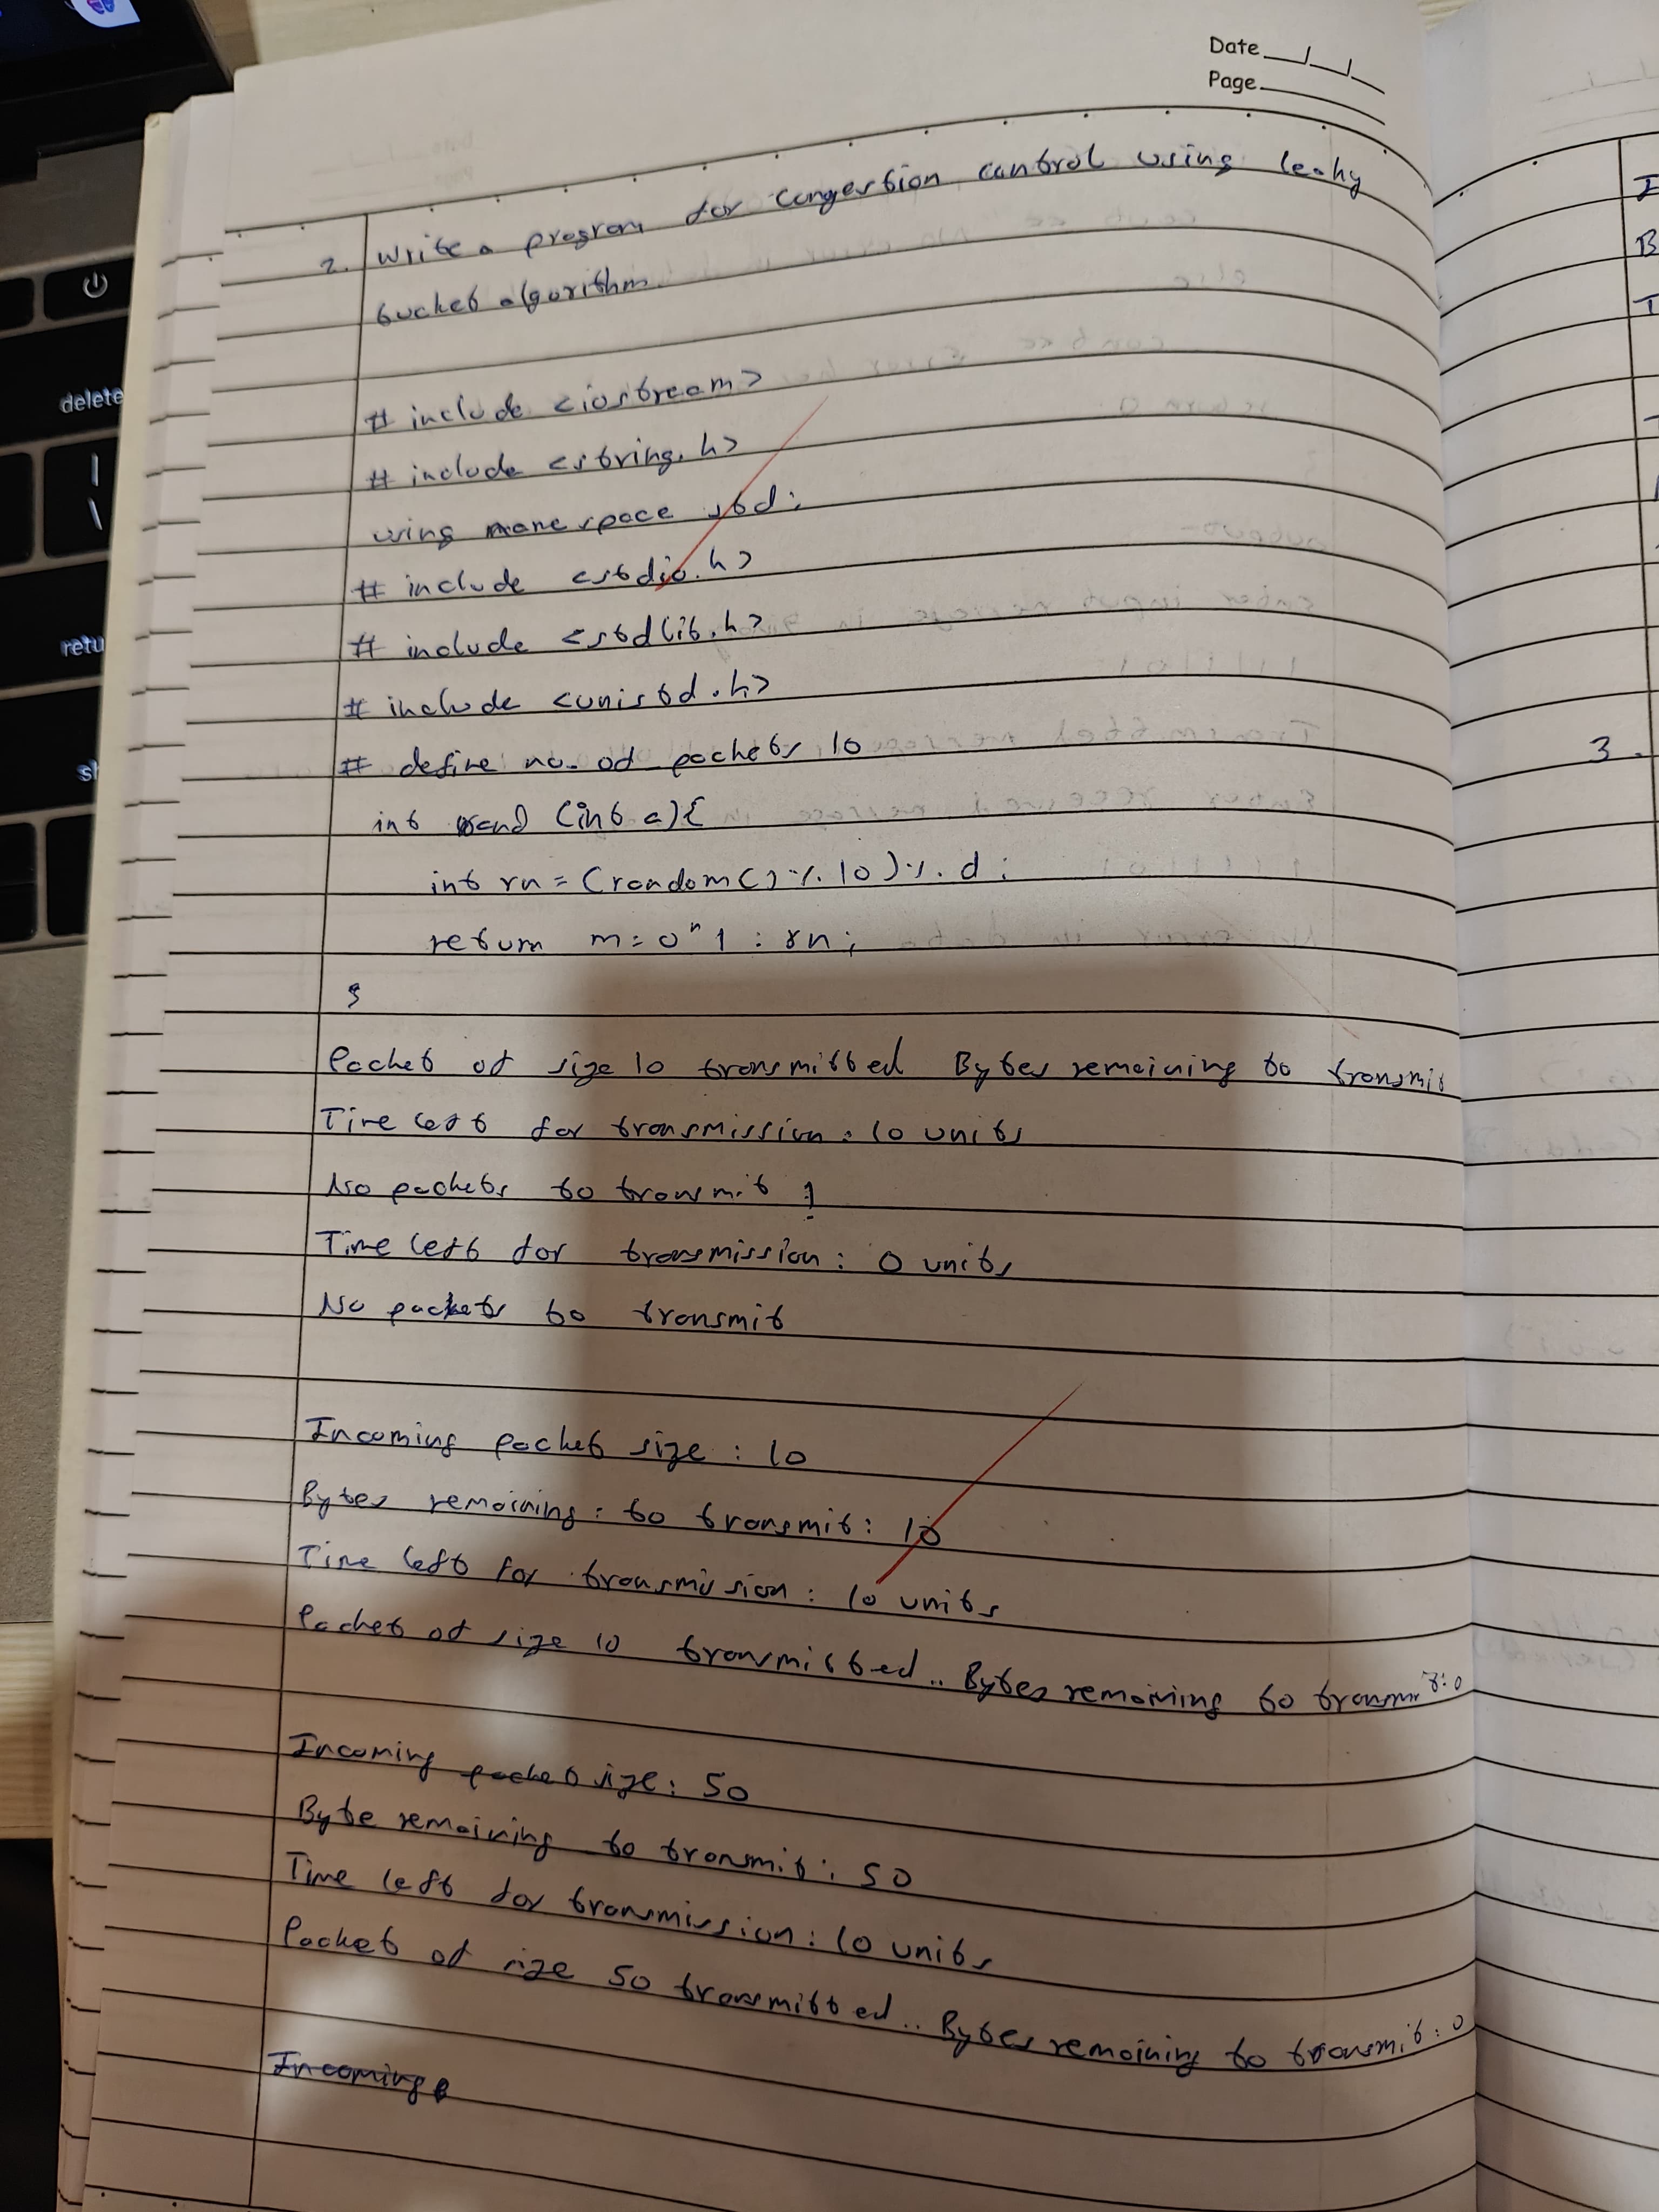 Date
Page
2. Write a program for congestion control using leaky
bucket algorithm
# include <iostream>
# include <string.h>
using namespace std;
# include <stdio.h>
# include <stdlib.h>
# include <unistd.h>
# define no. of packets 10
int rand (int a){
int rn = (random() % 10) % d;
return m = 0 " 1 : rn;
}
Packet of size 10 transmitted Bytes remaining to transmit
Time left for transmission : 10 units
No packets to transmit !
Time left for transmission : 0 units
No packets to transmit
Incoming packet size : 10
Bytes remaining : to transmit : 10
Time left for transmission : 10 units
Packet of size 10 transmitted .. Bytes remaining to transmit : 0
Incoming packet size : 50
Byte remaining to transmit : 50
Time left for transmission : 10 units
Packet of size 50 transmitted .. Bytes remaining to transmit : 0
Incoming
3.
delete